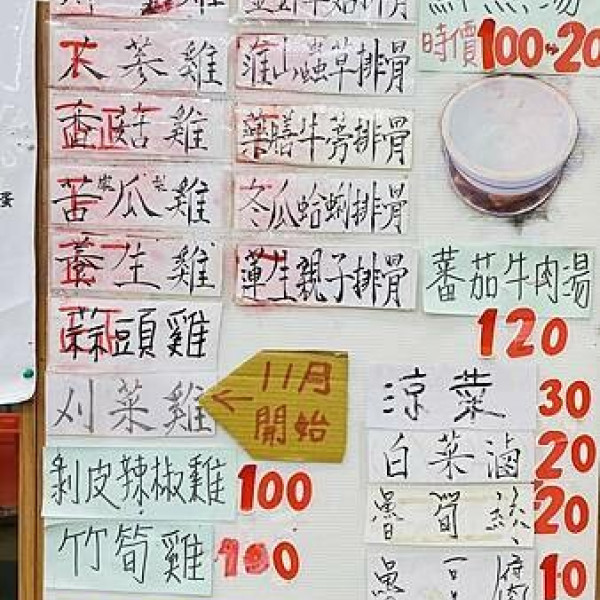 雞
太蔘雞
香菇雞
苦瓜雞
養生雞
蒜頭雞
刈菜雞
11月
開始
剝皮辣椒雞 100
竹筍雞 100
淮山蟲草排骨
藥膳牛蒡排骨
冬瓜蛤蜊排骨
蓮生親子排骨
時價 100~20
蕃茄牛肉湯
120
涼菜 30
白菜滷 20
魯筍絲 20
魯豆腐 10
蛋